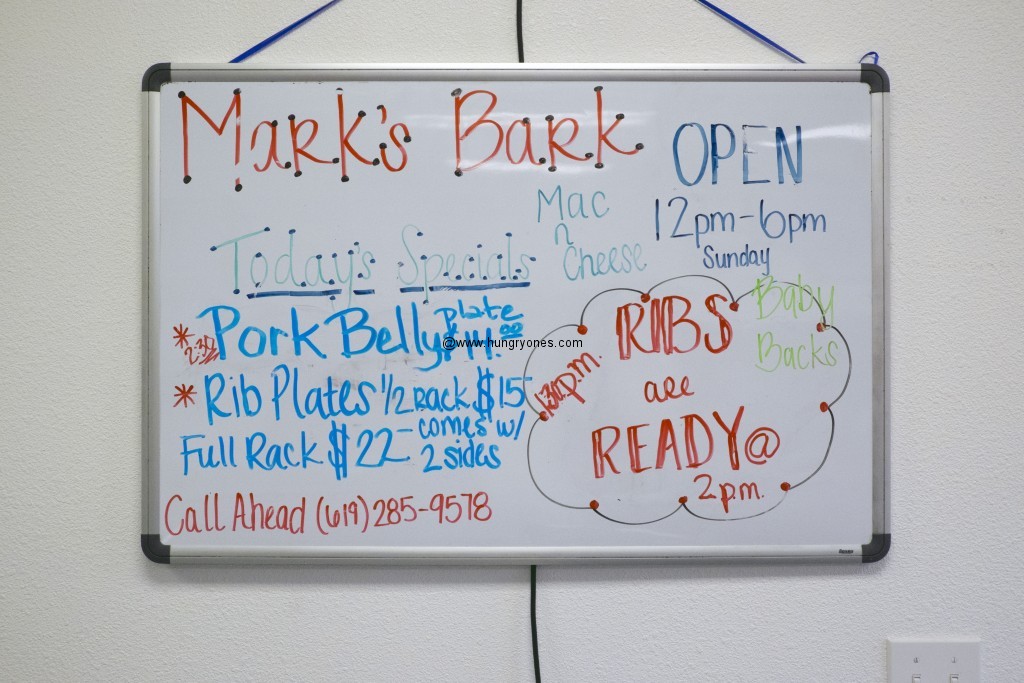 Mark's Bark
OPEN
12pm-6pm
Sunday
Mac
n
Cheese
Today's Specials
* 2:30 Pork Belly plate $14.00
@www.hungryones.com
* Rib Plates 1/2 RACK $15
Full Rack $22 - comes w/
2 sides
Call Ahead (619) 285-9578
Baby
Backs
RIBS
are
READY@
2 p.m.
1:30 p.m.